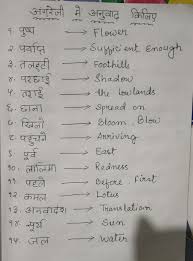 अंग्रेजी में अनुवाद किजिए
१. पुष्प → Flower
२. पर्याप्त → Sufficient Enough
३. तलहटी → Foothills
४. परछाई → Shadow
५. तराई → the lowlands
६. छाना → Spread on
७. खिलो → Bloom, Blow
८. पहुचने → Arriving
९. पूर्व → East
१०. लालिमा → Redness
११. पहले → Before, First
१२. कमल → Lotus
१३. अनुवादेश → Translation
१४. सूर्य → Sun
१५. जल → Water